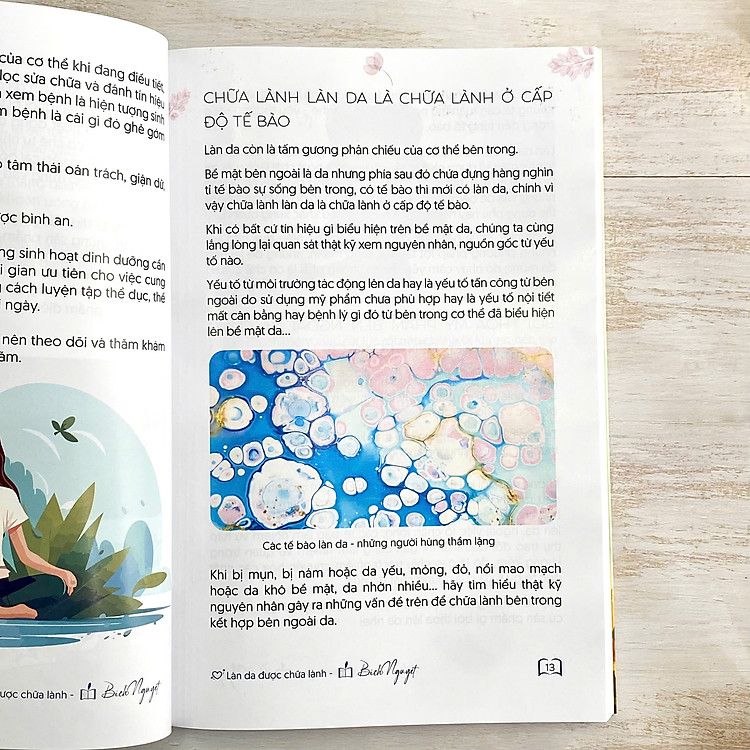 của cơ thể khi đang điều tiết,
lọc sửa chữa và đánh tín hiệu
xem bệnh là hiện tượng sinh
bệnh là cái gì đó ghê gớm
tâm thái oán trách, giận dữ,
bình an.
sinh hoạt dinh dưỡng cần
gian ưu tiên cho việc cung
cách luyện tập thể dục, thể
ngày.
nên theo dõi và thăm khám
được chữa lành - Bích Nguyệt
CHỮA LÀNH LÀN DA LÀ CHỮA LÀNH Ở CẤP
ĐỘ TẾ BÀO
Làn da còn là tấm gương phản chiếu của cơ thể bên trong.
Bề mặt bên ngoài là da nhưng phía sau đó chứa đựng hàng nghìn
tỉ tế bào sự sống bên trong, có tế bào thì mới có làn da, chính vì
vậy chữa lành làn da là chữa lành ở cấp độ tế bào.
Khi có bất cứ tín hiệu gì biểu hiện trên bề mặt da, chúng ta cùng
lắng lòng lại quan sát thật kỹ xem nguyên nhân, nguồn gốc từ yếu
tố nào.
Yếu tố từ môi trường tác động lên da hay là yếu tố tấn công từ bên
ngoài do sử dụng mỹ phẩm chưa phù hợp hay là yếu tố nội tiết
mất cân bằng hay bệnh lý gì đó từ bên trong cơ thể đã biểu hiện
lên bề mặt da...
Các tế bào làn da - những người hùng thầm lặng
Khi bị mụn, bị nám hoặc da yếu, mỏng, đỏ, nổi mao mạch
hoặc da khô bề mặt, da nhờn nhiều... hãy tìm hiểu thật kỹ
nguyên nhân gây ra những vấn đề trên để chữa lành bên trong
kết hợp bên ngoài da.
Làn da được chữa lành - Bích Nguyệt
13